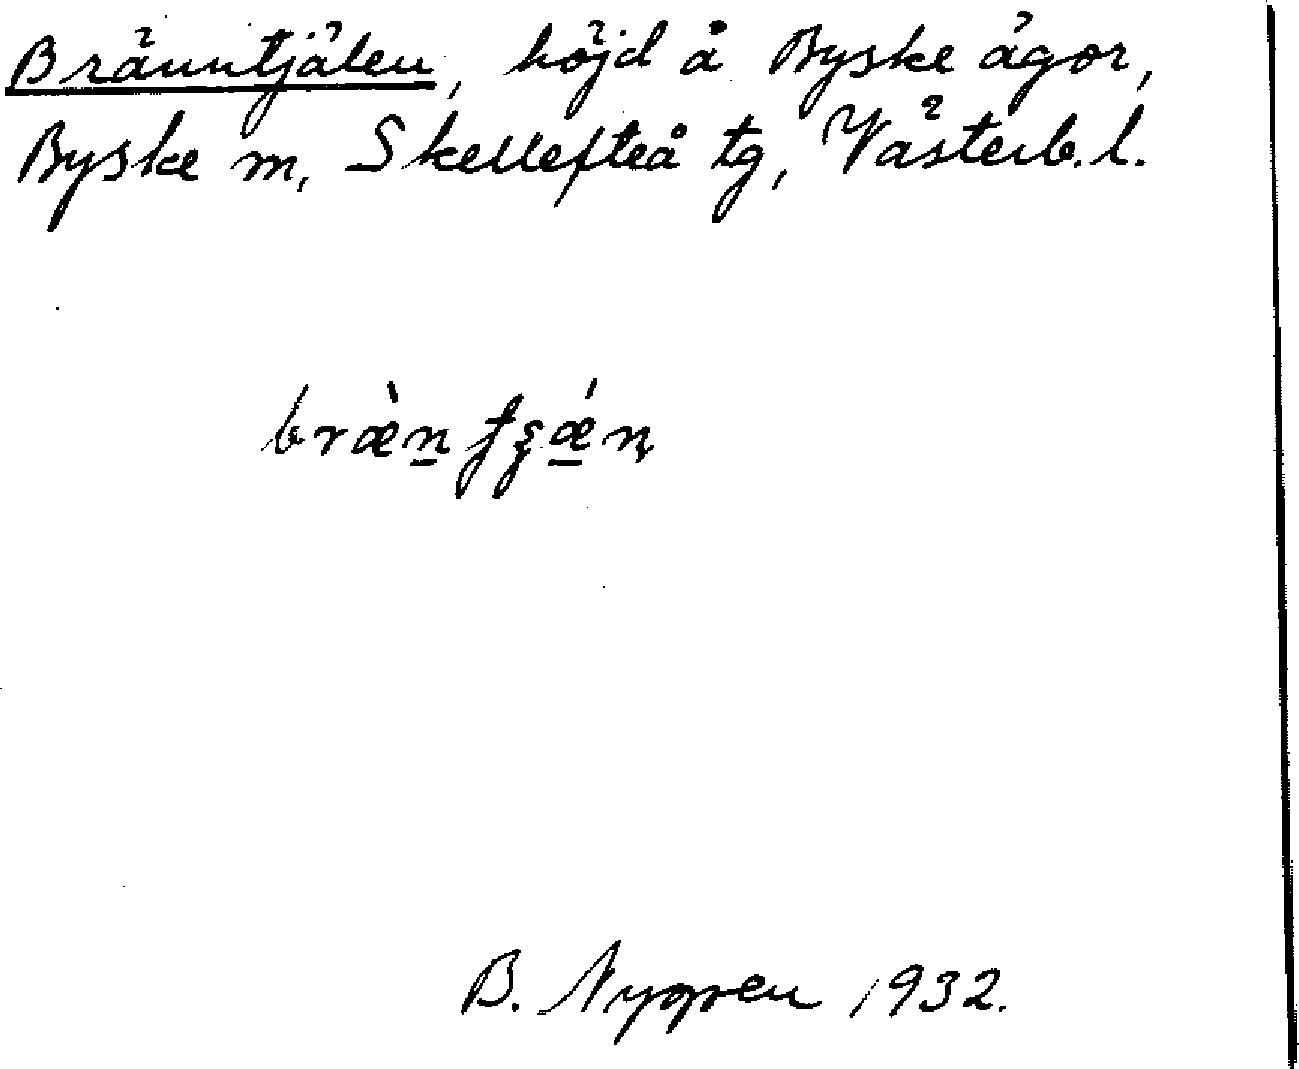 Bränntjälen, höjd å Byske ägor,
Byske sn, Skellefteå tg, Västerb. l.
bræ̀n̲ ʄʂǽ̲ṇ
B. Nygren 1932.